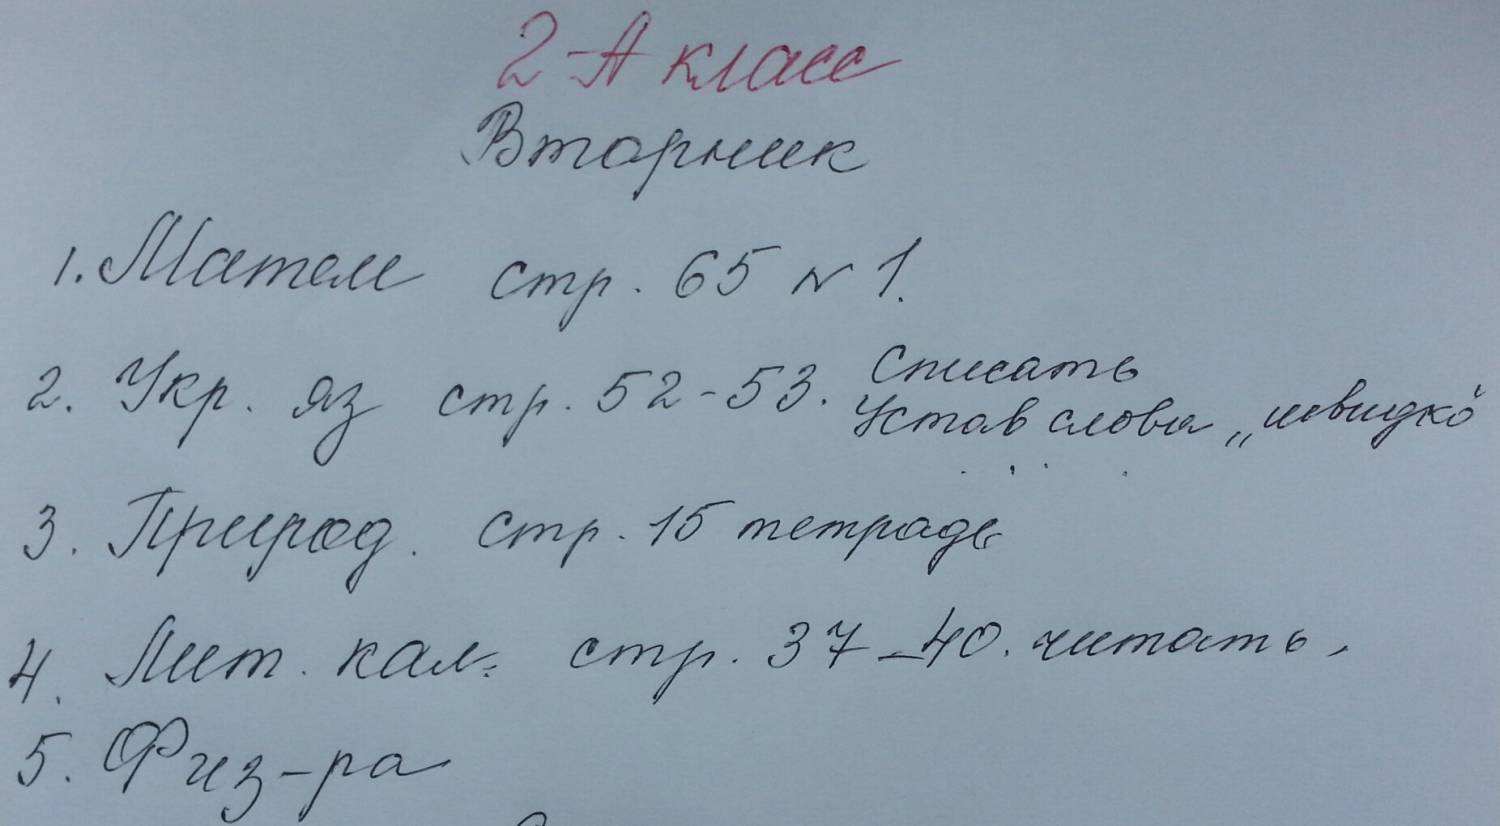 2-А класс
Вторник
1. Матем стр. 65 № 1.
2. Укр. яз стр. 52-53. Списать
Устав слова „швидко"
3. Природ. стр. 15 тетрадь
4. Лит. кал. стр. 37-40. читать.
5. Физ-ра